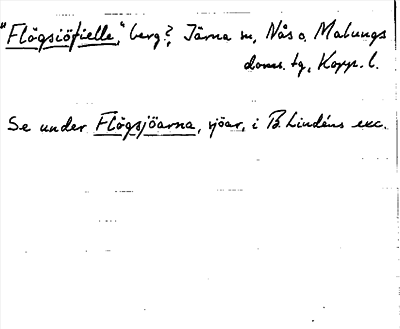 "Flögsiöfielle," berg?, Järna sn, Nås o. Malungs
doms. tg, Kopp. l.
Se under Flögsjöarna, sjöar, i B. Lindéns exc.